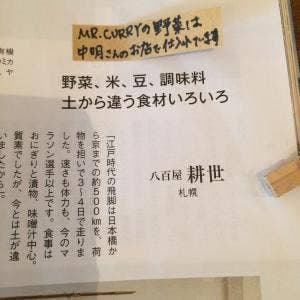 MR.CURRYの野菜は
中明さんのお店で仕入れてます
野菜、米、豆、調味料
土から違う食材いろいろ
八百屋 耕世
札幌
「江戸時代の飛脚は日本橋か
ら京までの約500㎞を、荷
物を担いで3〜4日で走りま
した。速さも体力も、今のマ
ラソン選手以上です。食事は
おにぎりと漬物、味噌汁中心。
質素でしたが、今とは土が違
いましたから」。
有機
のミカ
ミ、ヤ